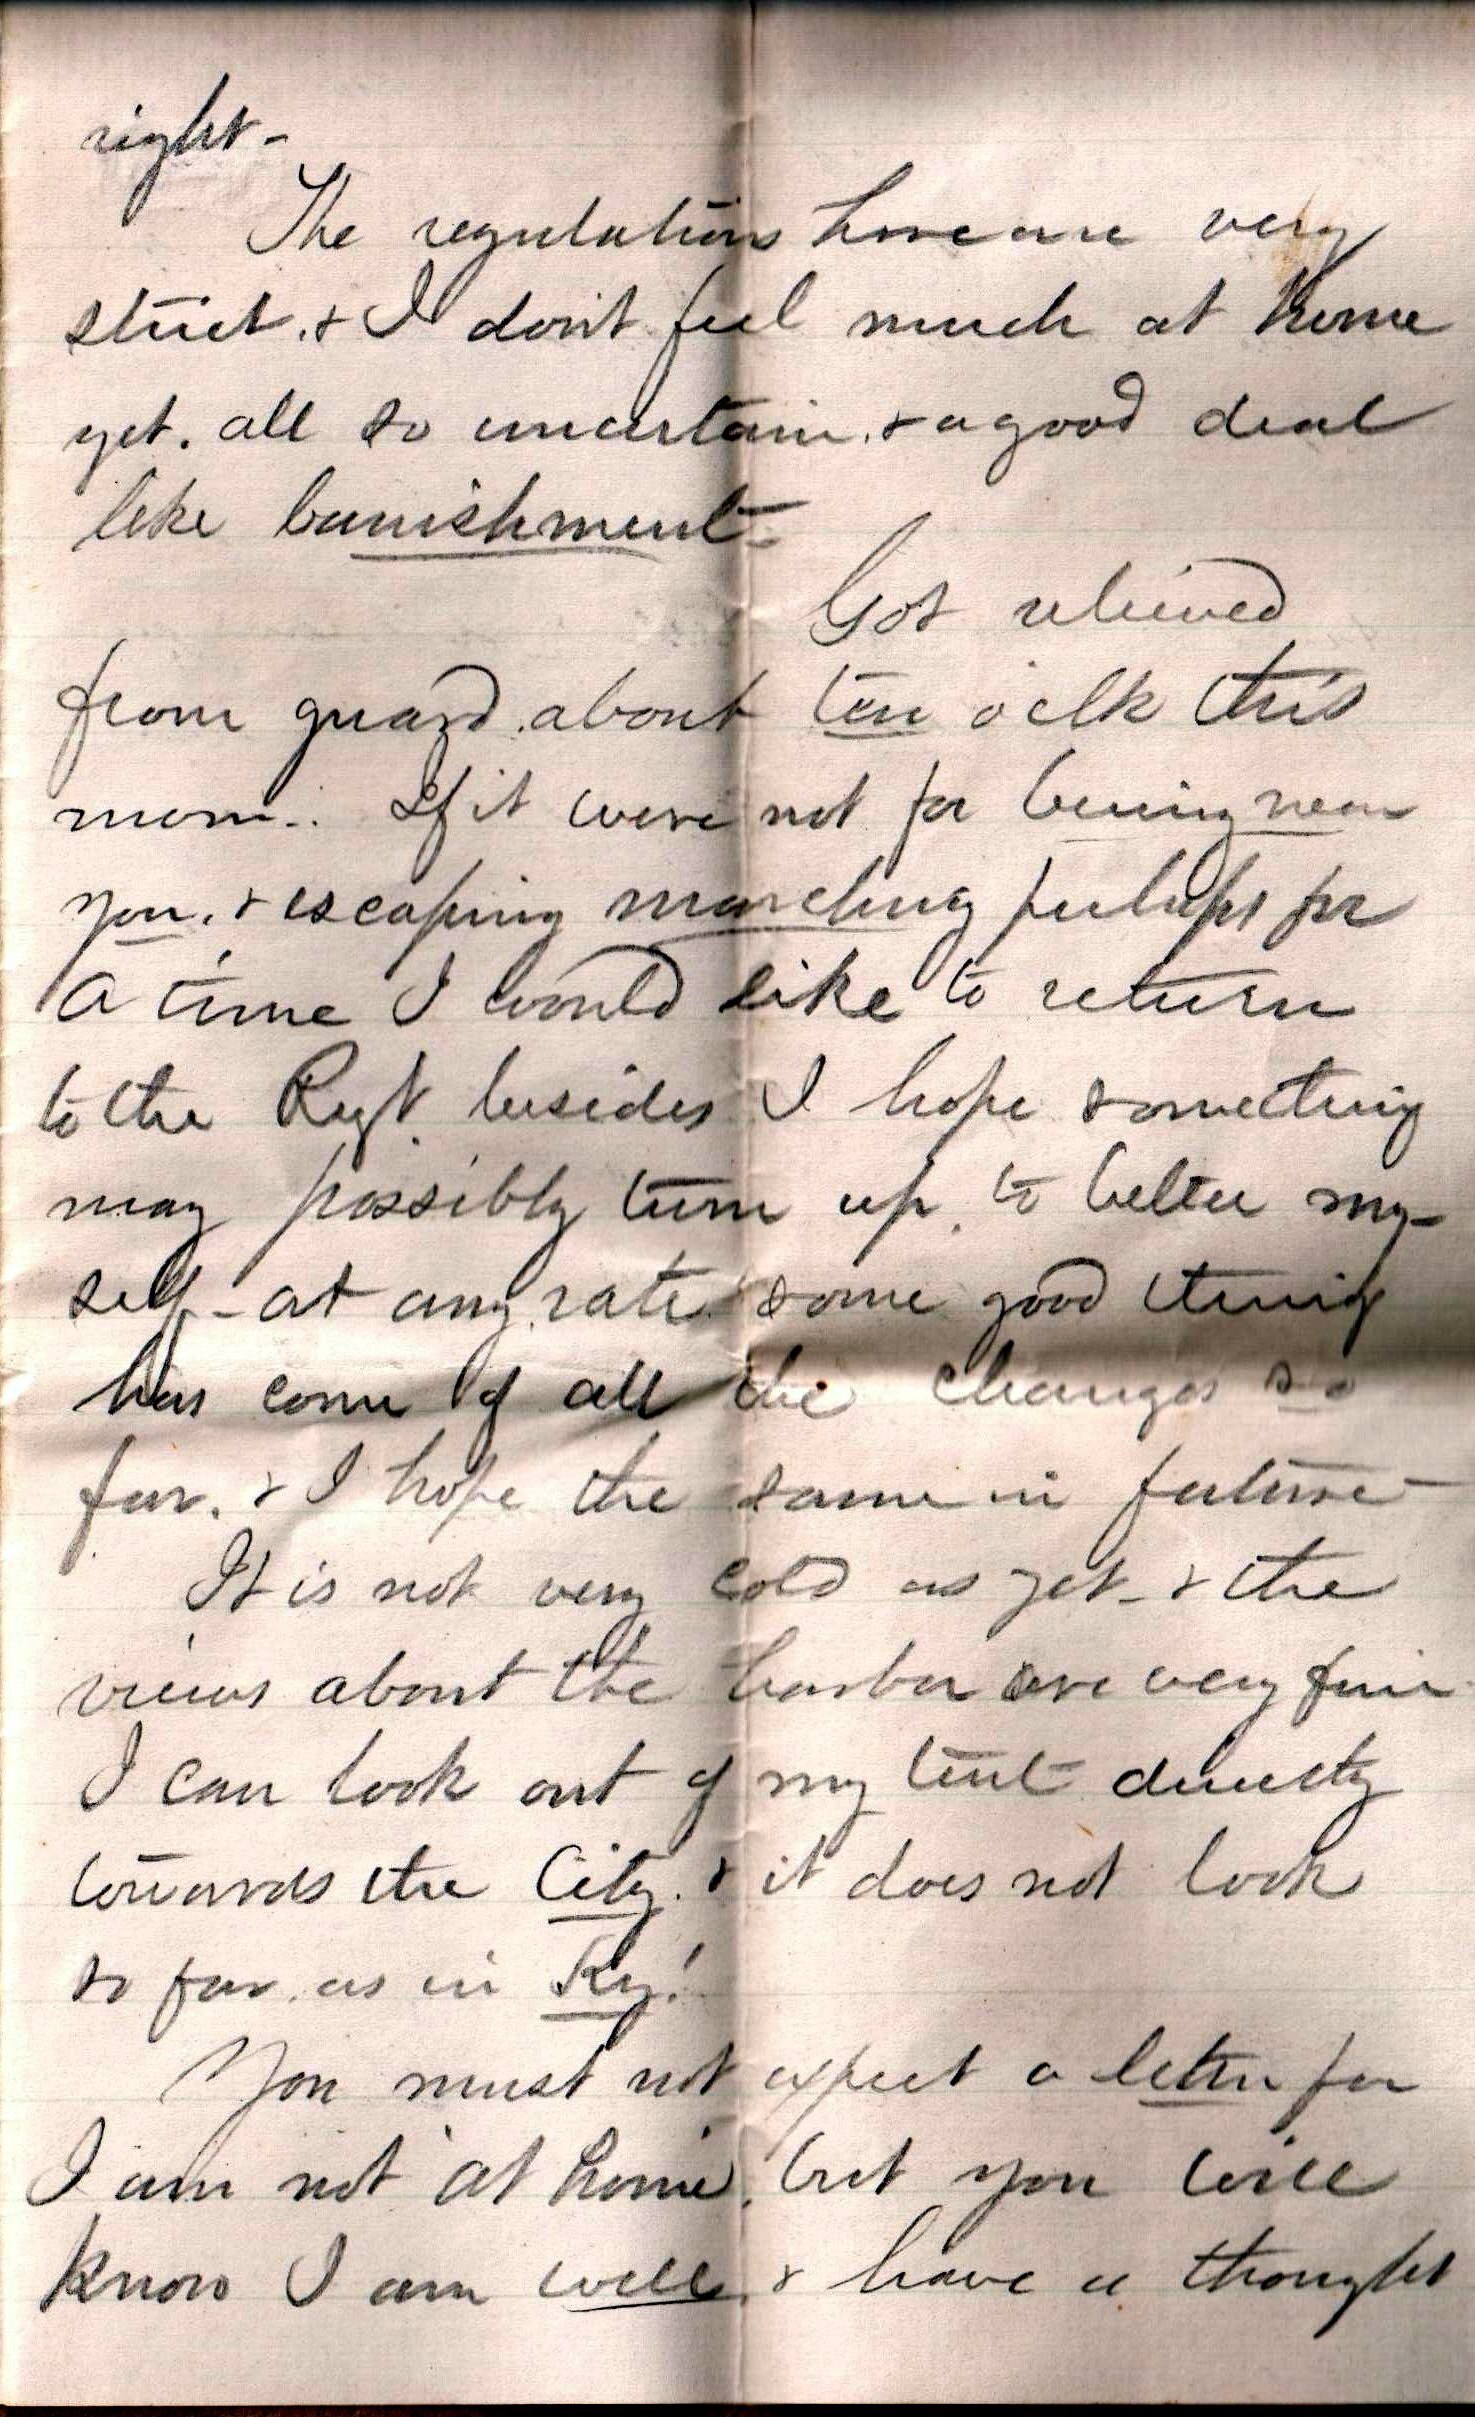 right -
The regulations here are very
strict. & I don't feel much at home
yet. all so uncertain. & a good deal
like banishment -
Got relieved
from guard about ten o'clk this
morn.. If it were not for being near
you. & escaping marching perhaps for
a time I would like to return
to the Regt. besides I hope something
may possibly turn up. to better my-
self - at any rate some good thing
has come of all the changes so
far. & I hope the same in future -
It is not very cold as yet - & the
views about the harbor are very fine
I can look out of my tent directly
towards the City. & it does not look
so far. as in Ky!
You must not expect a letter for
I am not at home, but you will
know I am well & have a thought